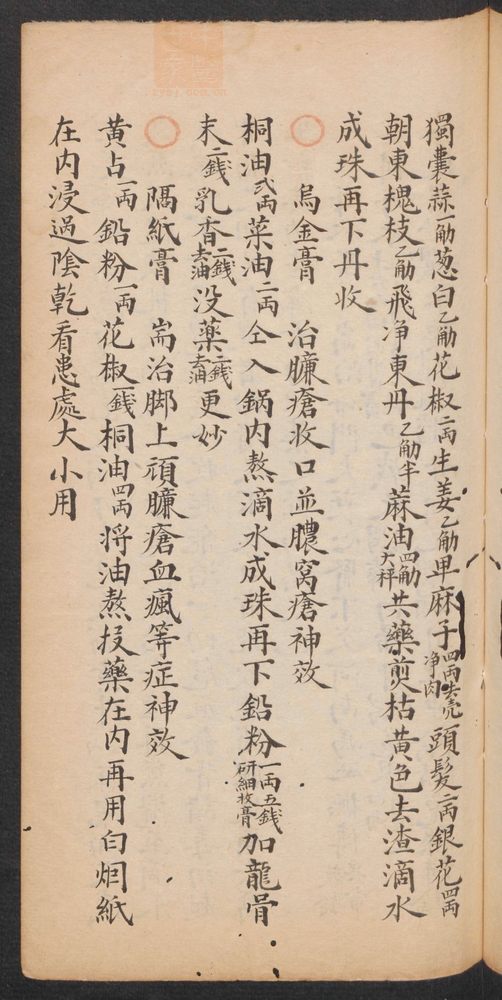 獨囊蒜一觔葱白乙觔花椒二兩生姜乙觔萆麻子四兩去壳净肉頭髮二兩銀花四兩
朝東槐枝乙觔飛净東丹乙觔半蔴油四觔大秤共藥煎枯黃色去渣滴水
成珠再下丹收
烏金膏 治臁瘡收口並膿窩瘡神效
桐油弍兩菜油二兩仝入鍋内熬滴水成珠再下鉛粉一兩五錢研細收膏加龍骨
末二錢乳杳二錢去油没藥二錢去油更妙
隔紙膏 耑治脚上頑臁瘡血瘋等症神效
黄占一兩鉛粉一兩花椒一錢桐油四兩將油熬投藥在内再用白烟紙
在内浸過陰乾看患處大小用